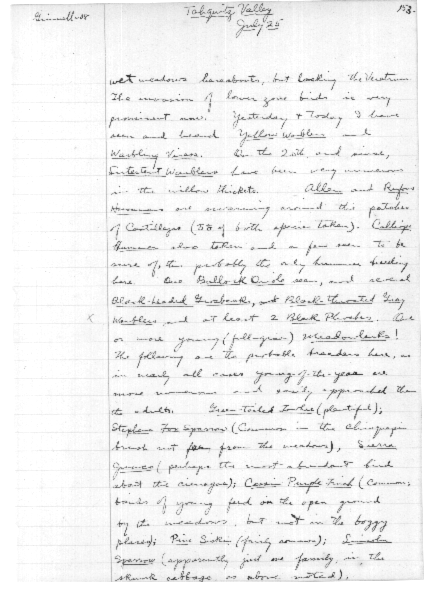 Grinnell-08
Tahquitz Valley
July 25
153.
wet meadows hereabouts, but lacking the Veratrum.
The invasion of lower zone birds is very
prominent now. Yesterday & Today I have
seen and heard Yellow Warblers and
Warbling Vireos. On the 20th, and since,
Lutescent Warblers have been very numerous
in the willow thickets. Allen and Rufous
Hummers are swarming around the patches
of Castillejas (of both species taken). Calliope
Hummer also taken and a few seen to be
sure of, this probably the only hummer breeding
here. One Bullock Oriole seen, and several
Black-headed Grosbeaks, and Black-throated Gray
Warblers, and at least 2 Black Phoebes. One
or more young (full-grown) Meadowlarks!
The following are the probable breeders here, as
in nearly all cases young-of-the-year are
more numerous and easily approached than
the adults. Green-tailed Towhee (plentiful);
Stephens Fox Sparrow (Common in the Chinquapin
brush not far from the meadows), Sierra
Junco (perhaps the most abundant bird
about the cienegas); Cassin Purple Finch (Common;
bands of young feed on the open ground
by the meadows, but not in the boggy
places); Pine Siskin (fairly common); Lincoln
Sparrow (apparently just one family, in the
skunk cabbage as above noted),